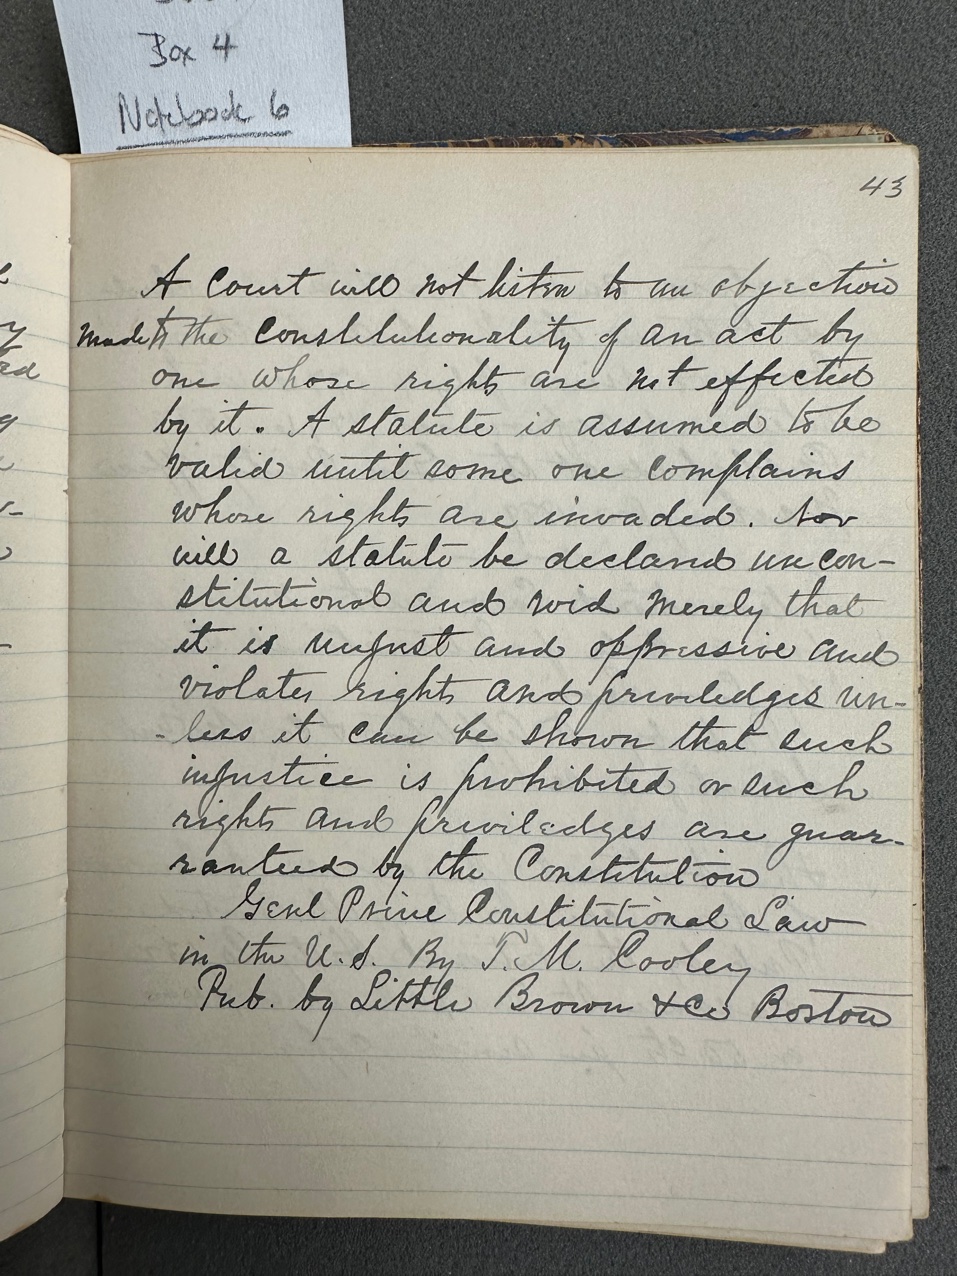 Box 4
Notebook 6
43
A Court will not listen to an objection
made to the Constitutionality of an act by
one whose rights are not effected
by it. A statute is assumed to be
valid until some one complains
whose rights are invaded. Nor
will a statute be declared uncon-
stitutional and void merely that
it is unjust and oppressive and
violates rights and priviledges un-
-less it can be shown that such
injustice is prohibited or such
rights and priviledges are guar-
ranteed by the Constitution
Genl Prine Constitutional Law
in the U.S. By T. M. Cooley
Pub. by Little Brown & Co Boston